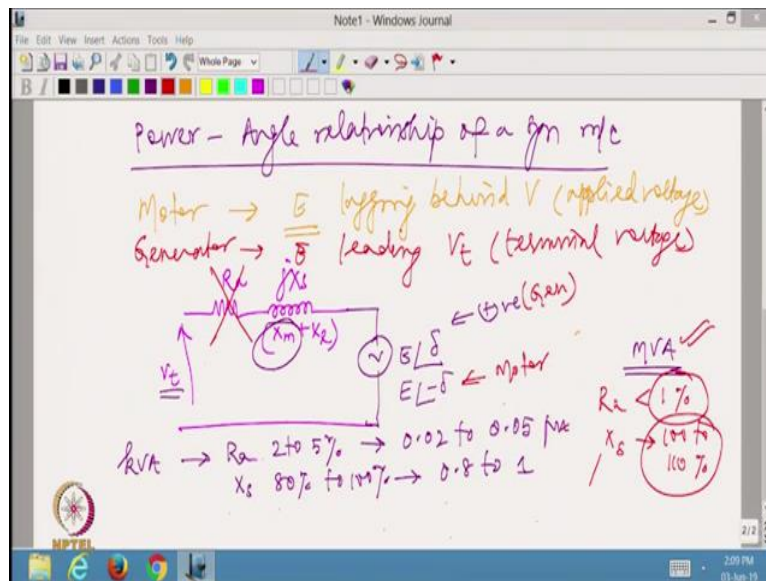 Note1 - Windows Journal
File Edit View Insert Actions Tools Help
Whole Page
B I
Power - Angle relationship of a syn m/c
Motor → E lagging behind V (applied voltage)
Generator → E leading Vt (terminal voltage)
Ra jXs
(Xm + Xl)
Vt
E∠δ ← (+)ve (Gen)
E∠-δ ← Motor
MVA
Ra < 1%
Xs → 100 to
kVA → Ra 2 to 5% → 0.02 to 0.05 pu
Xs 80% to 100% → 0.8 to 1
NPTEL
2/2
2:09 PM
03-Jun-15